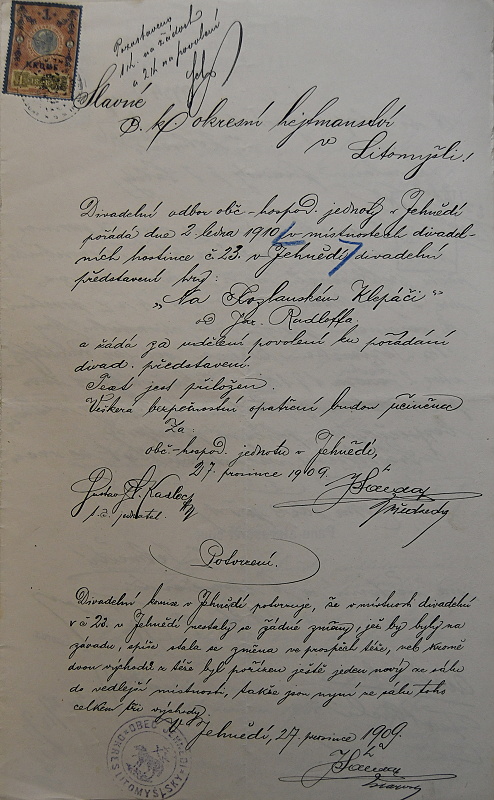 Pozastaveno
1 k. na žádost
a 2 k. na povolení
Slavné
c. k. okresní hejtmanství
v Litomyšli!
Divadelní odbor obč.-hospod. jednoty v Jehnědí
pořádá dne 2. ledna 1910 v místnostech divadel-
ních hostince č 23. v Jehnědí divadelní
představení hry:
„Na Kozlanském Klepáči"
od Radloffa.
a žádá za udělení povolení ku pořádání
divad. představení.
Text jest přiložen.
Veškerá bezpečnostní opatření budou učiněna
Za
obč-hospod. jednotu v Jehnědí,
27. prosince 1909.
Gustav
t. č. jednatel.
předseda
Potvrzení.
Divadelní komise v Jehnědí potvrzuje, že v místnosti divadelní
v č 23. v Jehnědí nestaly se žádné změny, jež by byly na
závadu, spíše stala se změna ve prospěch téže, neb kromě
dvou východů z téže byl pořízen ještě jeden nový ze sálu
do vedlejší místnosti, takže jsou nyní ze sálu toho
celkem tři východy.
V Jehnědí, 27. prosince 1909.
starosta
OBEC
OKRES LITOMYŠLSKÝ